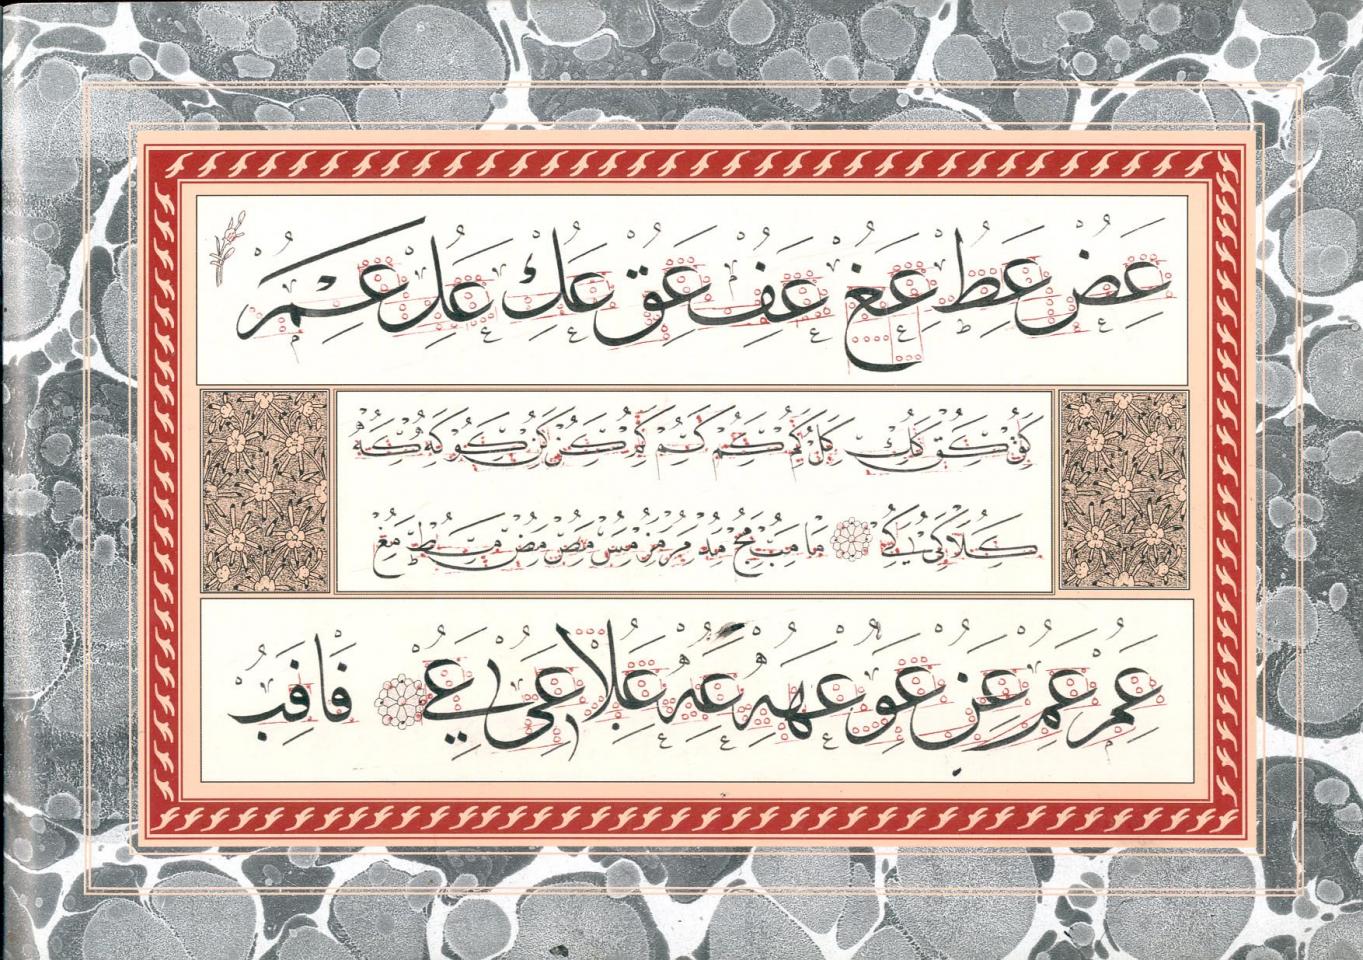 عض عط عغ عف عق عك عل عم
كف كق كك كل كم كم كم كم كن كن كو كه كه
كلا كى كے ما مب مج مد مر مز مس مص مض مط مغ
عم عم عن عو عهه عه علا عى عے فا فب